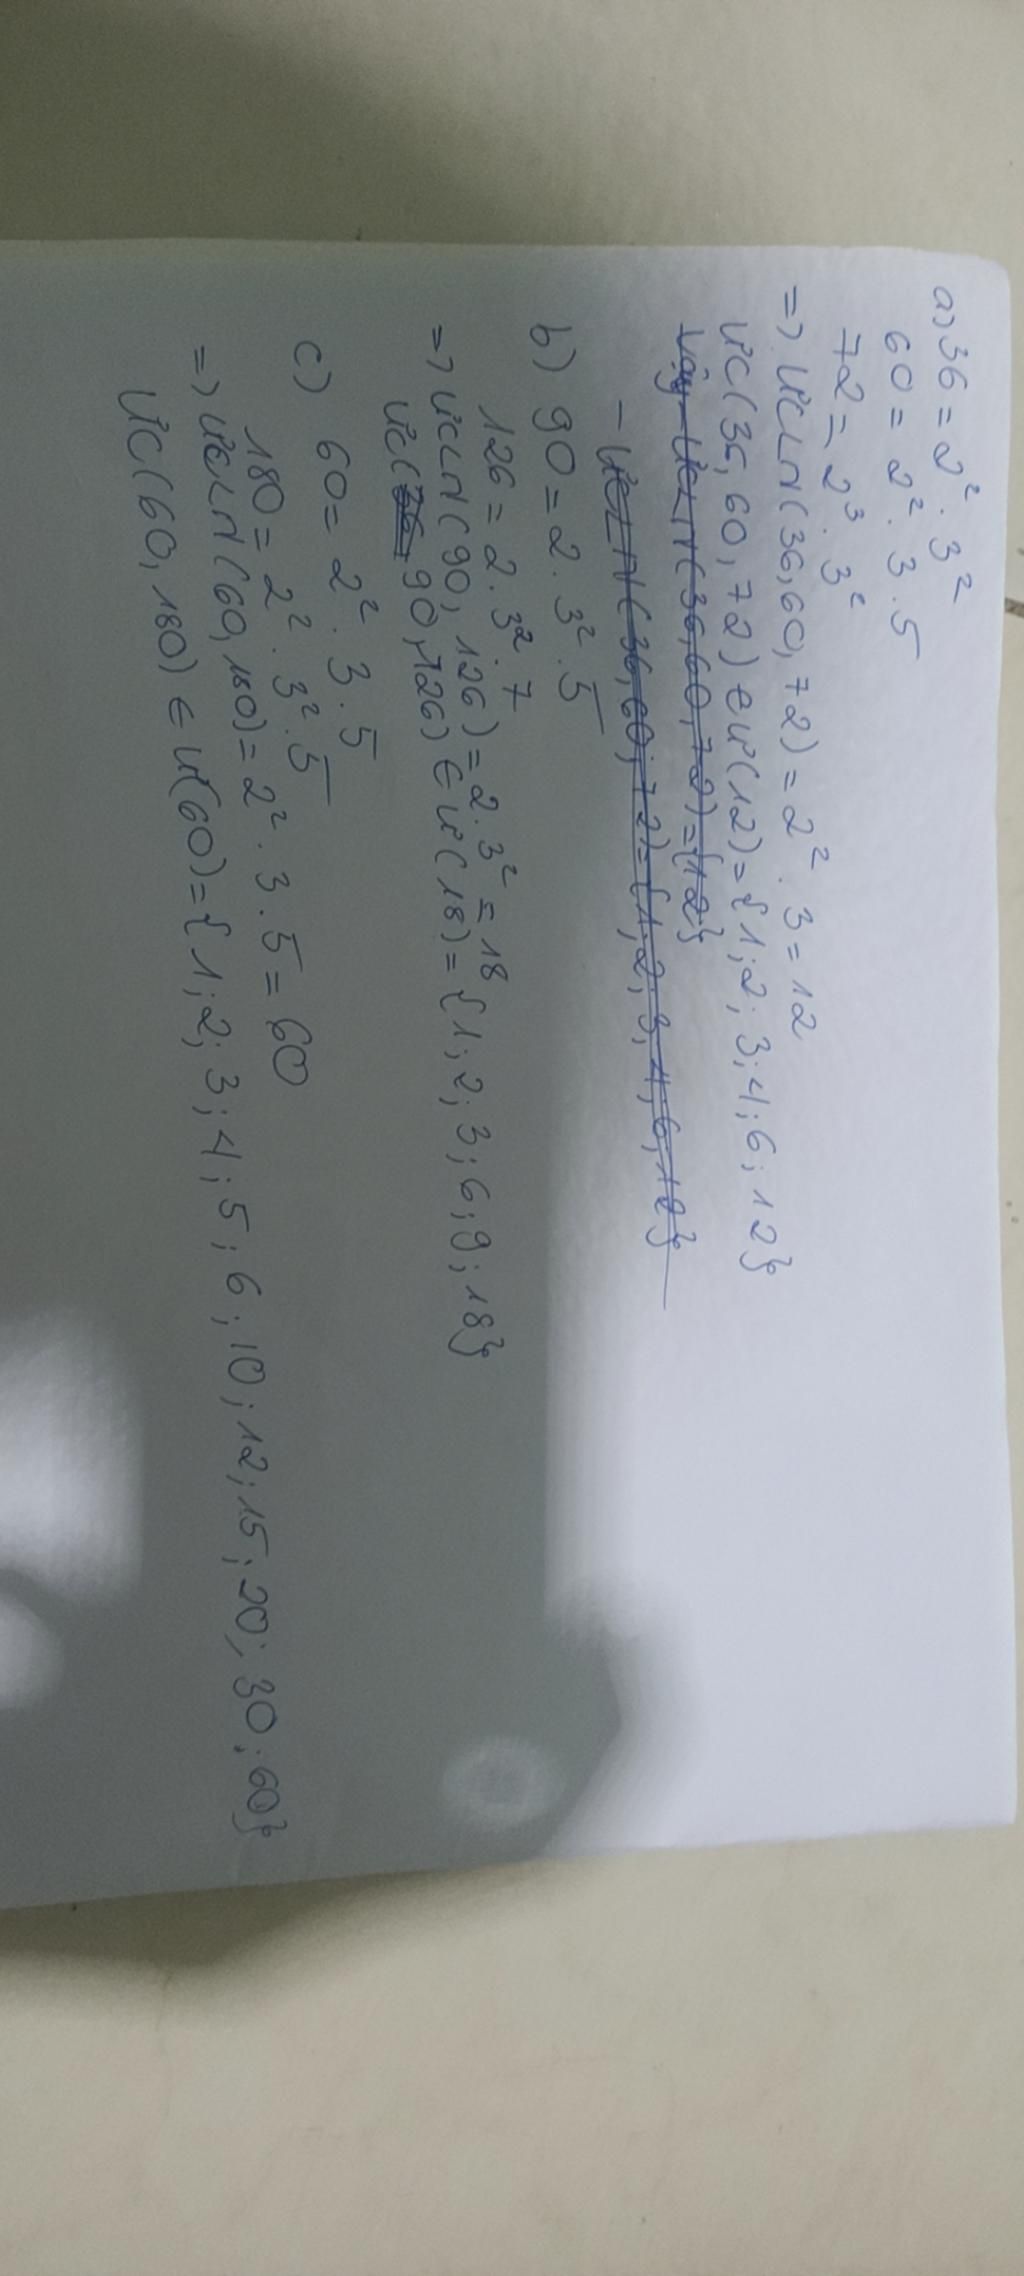 a) 36 = 2² . 3²
60 = 2² . 3 . 5
72 = 2³ . 3²
=> ƯCLN (36, 60, 72) = 2² . 3 = 12
ƯC (36, 60, 72) ∈ Ư(12) = {1; 2; 3; 4; 6; 12}
Vậy ƯCLN (36, 60, 72) = {12}
- ƯCLN (36, 60, 72) = {1; 2; 3; 4; 6; 12}
b) 90 = 2 . 3² . 5
126 = 2 . 3² . 7
=> ƯCLN (90, 126) = 2 . 3² = 18
ƯC ( 90, 126) ∈ Ư (18) = {1; 2; 3; 6; 9; 18}
c) 60 = 2² . 3 . 5
180 = 2² . 3² . 5
=> ƯCLN (60, 180) = 2² . 3 . 5 = 60
ƯC (60, 180) ∈ Ư(60) = {1; 2; 3; 4; 5; 6; 10; 12; 15; 20; 30; 60}